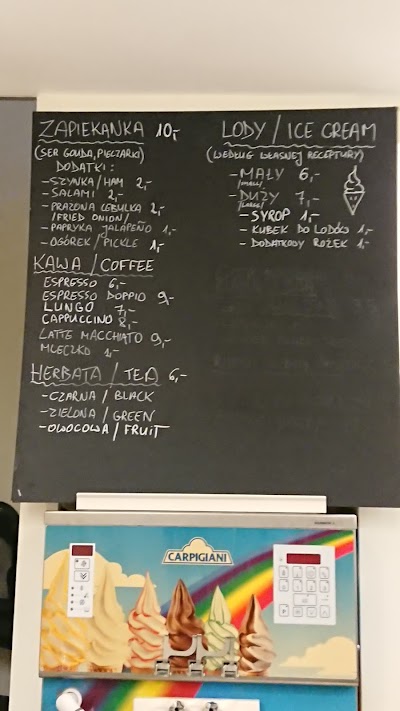 ZAPIEKANKA 10,-
(SER GOUDA, PIECZARKI)
DODATKI:
- SZYNKA/HAM 2,-
- SALAMI 2,-
- PRAŻONA CEBULKA 2,-
/FRIED ONION/
- PAPRYKA JALAPEÑO 1,-
- OGÓREK/PICKLE 1,-
KAWA/COFFEE
ESPRESSO 6,-
ESPRESSO DOPPIO 9,-
LUNGO 7,-
CAPPUCCINO 8,-
LATTE MACCHIATO 9,-
MLECZKO 1,-
HERBATA/TEA 6,-
- CZARNA/BLACK
- ZIELONA/GREEN
- OWOCOWA/FRUIT
LODY/ICE CREAM
(WEDŁUG WŁASNEJ RECEPTURY)
- MAŁY 6,-
/SMALL/
- DUŻY 7,-
/LARGE/
- SYROP 1,-
- KUBEK DO LODÓW 1,-
- DODATKOWY ROŻEK 1,-
CARPIGIANI